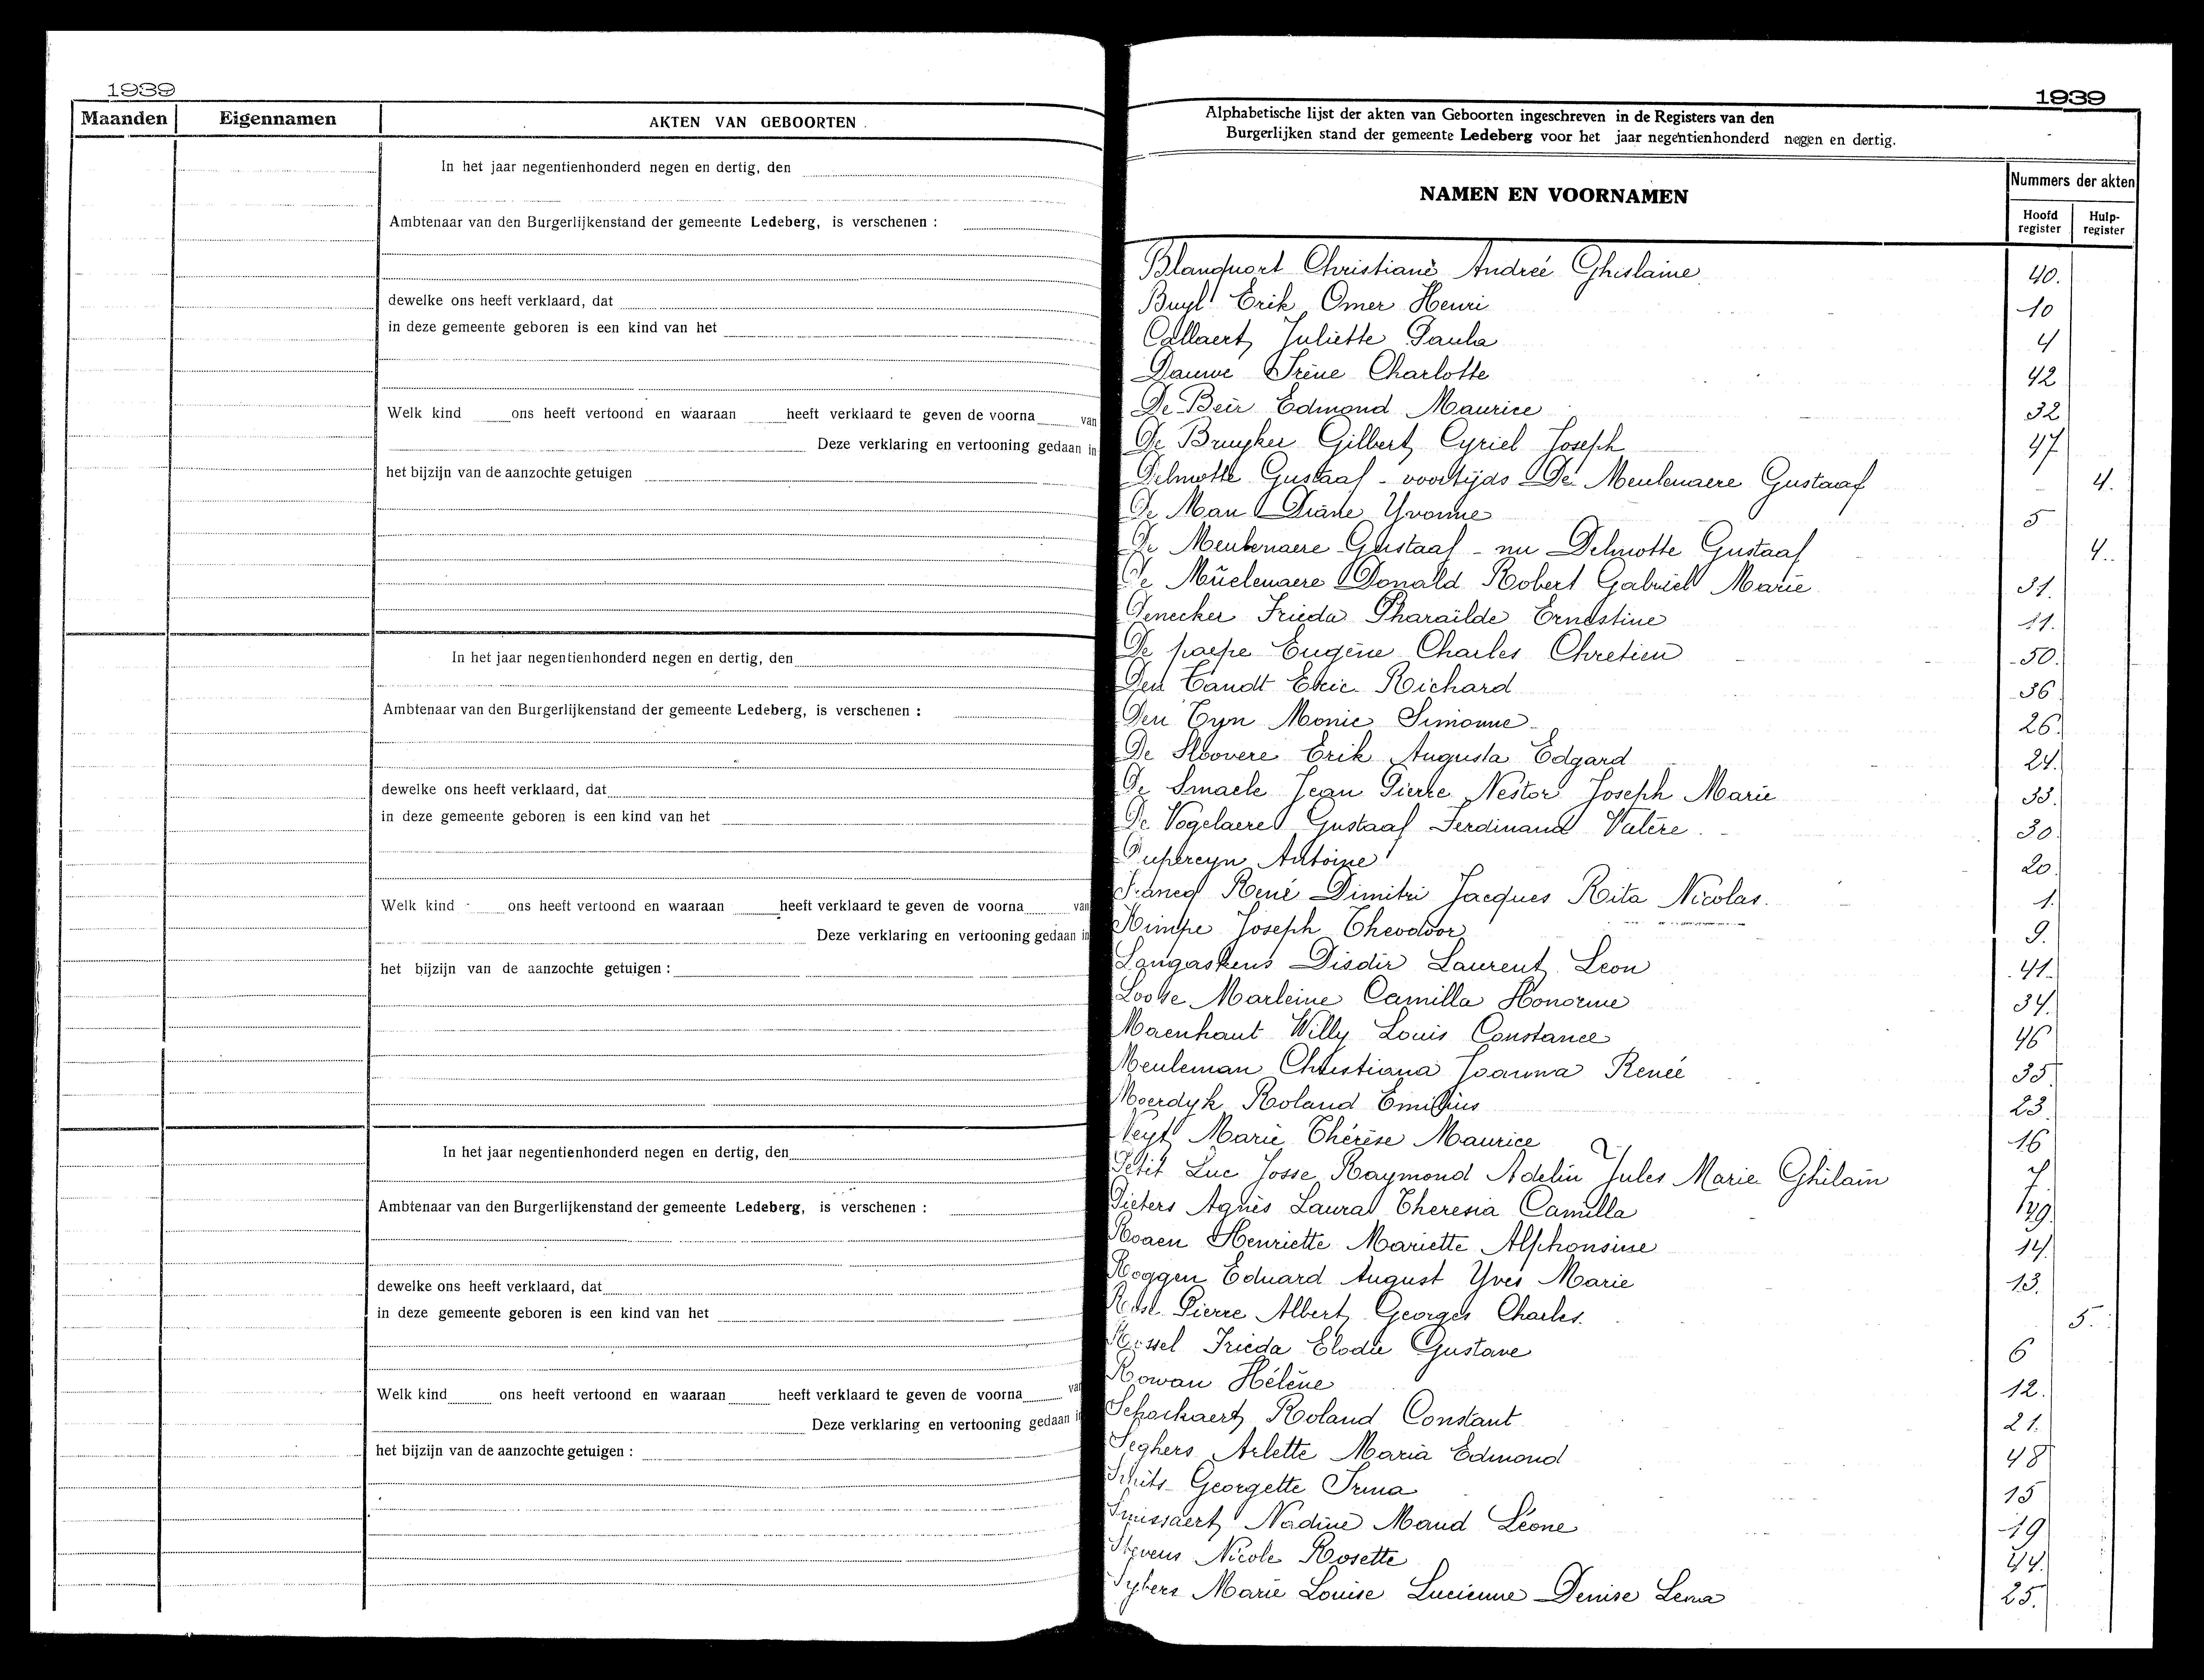 1939
Maanden Eigennamen AKTEN VAN GEBOORTEN
In het jaar negentienhonderd negen en dertig, den
Ambtenaar van den Burgerlijkenstand der gemeente Ledeberg, is verschenen :
dewelke ons heeft verklaard, dat
in deze gemeente geboren is een kind van het
Welk kind ons heeft vertoond en waaraan heeft verklaard te geven de voorna van
Deze verklaring en vertooning gedaan in
het bijzijn van de aanzochte getuigen
In het jaar negentienhonderd negen en dertig, den
Ambtenaar van den Burgerlijkenstand der gemeente Ledeberg, is verschenen :
dewelke ons heeft verklaard, dat
in deze gemeente geboren is een kind van het
Welk kind ons heeft vertoond en waaraan heeft verklaard te geven de voorna van
Deze verklaring en vertooning gedaan in
het bijzijn van de aanzochte getuigen :
In het jaar negentienhonderd negen en dertig, den
Ambtenaar van den Burgerlijkenstand der gemeente Ledeberg, is verschenen :
dewelke ons heeft verklaard, dat
in deze gemeente geboren is een kind van het
Welk kind ons heeft vertoond en waaraan heeft verklaard te geven de voorna van
Deze verklaring en vertooning gedaan in
het bijzijn van de aanzochte getuigen :
1939
Alphabetische lijst der akten van Geboorten ingeschreven in de Registers van den
Burgerlijken stand der gemeente Ledeberg voor het jaar negentienhonderd negen en dertig.
NAMEN EN VOORNAMEN
Nummers der akten
Hoofd register Hulp-register
Blanquart Christiane Andrée Ghislaine 40.
Buyl Erik Omer Henri 10
Callaert Juliette Paula 4
Dauwe Irène Charlotte 42
De Beir Edmond Maurice 32
De Bruyker Gilbert Cyriel Joseph 47
Delmotte Gustaaf - voortijds De Meulenaere Gustaaf 4.
De Man Diane Yvonne 5
De Meulenaere Gustaaf - nu Delmotte Gustaaf 4.
De Muelenaere Donald Robert Gabriel Marie 31.
Denecker Frieda Pharaïlde Ernestine 11.
De paepe Eugène Charles Chretien 50.
Den Tandt Eric Richard 36
Den Tyn Monic Simonne 26
De Sloovere Erik Augusta Edgard 24.
De Smaele Jean Pierre Nestor Joseph Marie 33.
De Vogelaere Gustaaf Ferdinand Valère. 30
Antoine 20
René Dimitri Jacques Rita Nicolas. 1.
Kimpe Joseph Theodoor 9.
Langaskens Disdir Laurent Leon 41.
Loose Marleine Camilla Honorine 34.
Maenhaut Willy Louis Constance 46
Meuleman Christiana Joanna Renée 35
Moerdyk Roland Emilius 23
Neyt Marie Thérèse Maurice 16
Petit Luc Josse Raymond Adelin Jules Marie Ghilain 7
Pieters Agnès Laura Theresia Camilla 49
Roaen Henriette Mariette Alphonsine 14
Roggen Eduard August Yves Marie 13.
Pierre Albert Georges Charles. 5.
Rossel Frieda Elodie Gustave 6
Rowan Hélène 12.
Schockaert Roland Constant 21.
Seghers Arlette Maria Edmond 48
Georgette Irma 15
Smissaert Nadine Maud Léone 19
Stevens Nicole Rosette 44
Sybers Marie Louise Lucienne Denise Lena 25.